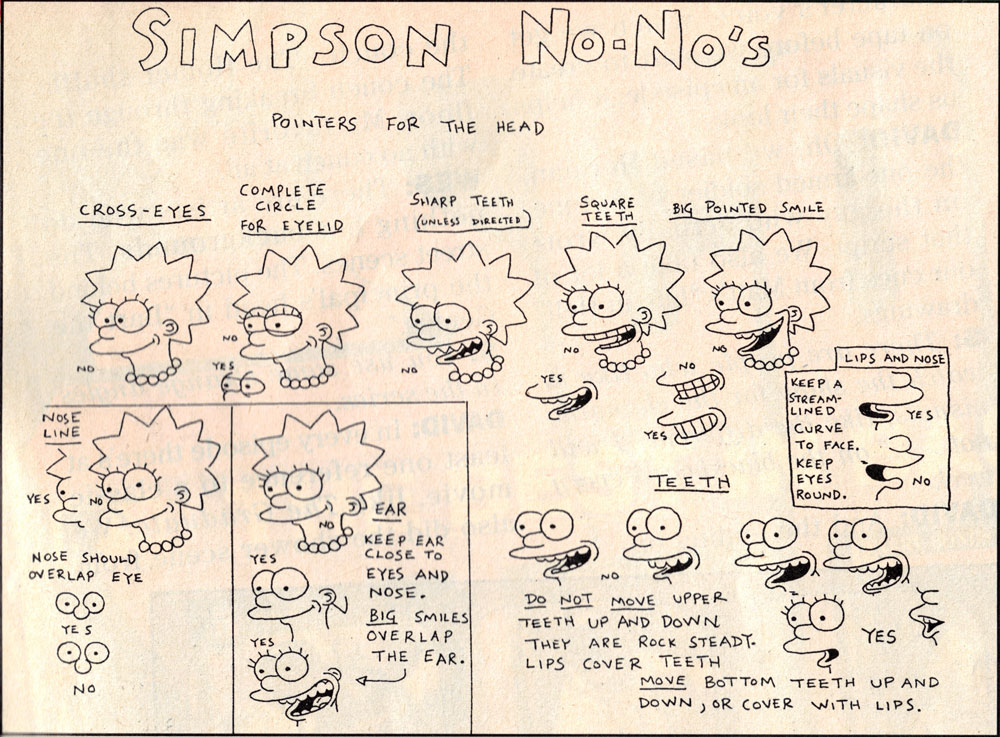 SIMPSON NO-NO'S
POINTERS FOR THE HEAD
CROSS-EYES
NO
COMPLETE
CIRCLE
FOR EYELID
NO
YES
SHARP TEETH
(UNLESS DIRECTED)
NO
SQUARE
TEETH
NO
YES
NO
YES
BIG POINTED SMILE
NO
LIPS AND NOSE
KEEP A
STREAM-
LINED
CURVE
TO FACE.
KEEP
EYES
ROUND.
YES
NO
NOSE
LINE
YES
NO
NOSE SHOULD
OVERLAP EYE
YES
NO
NO
EAR
KEEP EAR
CLOSE TO
EYES AND
NOSE.
BIG SMILES
OVERLAP
THE EAR.
YES
YES
TEETH
NO
DO NOT MOVE UPPER
TEETH UP AND DOWN
THEY ARE ROCK STEADY.
LIPS COVER TEETH
YES
MOVE BOTTOM TEETH UP AND
DOWN, OR COVER WITH LIPS.